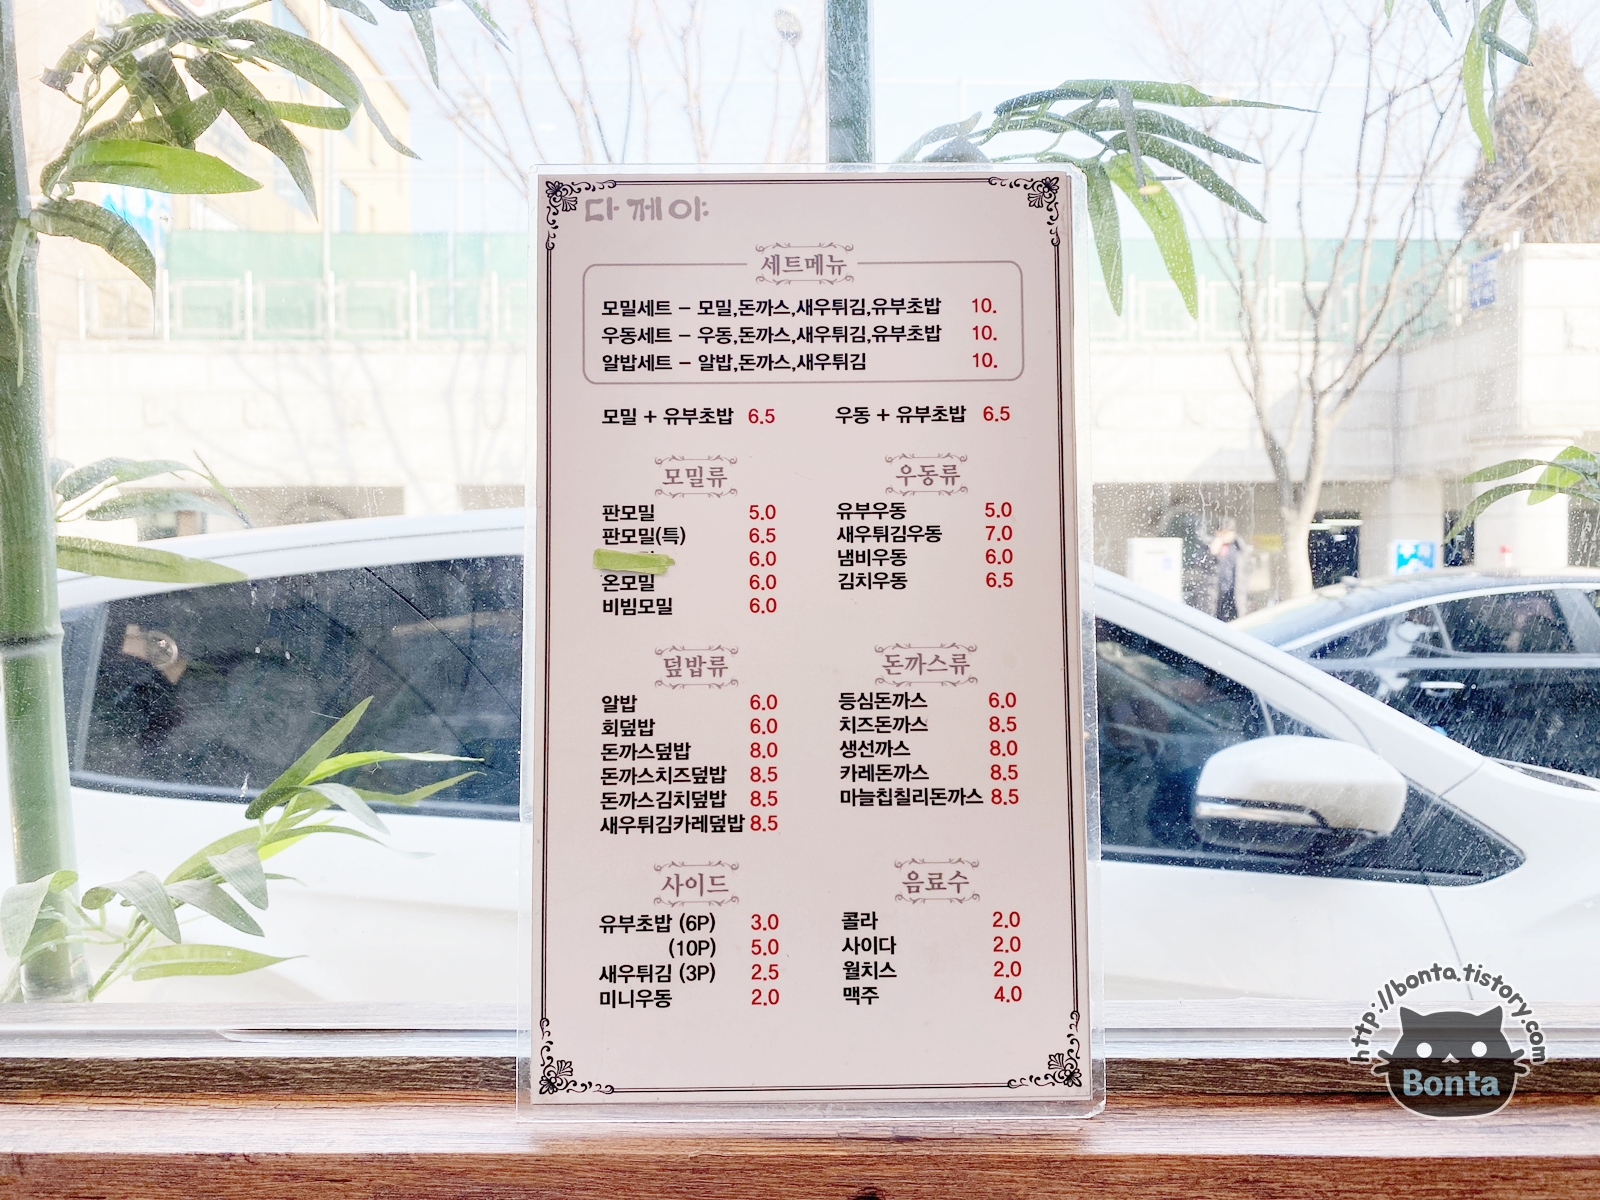 다께야
세트메뉴
모밀세트 – 모밀,돈까스,새우튀김,유부초밥 10.
우동세트 – 우동,돈까스,새우튀김,유부초밥 10.
알밥세트 – 알밥,돈까스,새우튀김 10.
모밀 + 유부초밥 6.5
우동 + 유부초밥 6.5
모밀류
판모밀 5.0
판모밀(특) 6.5
6.0
온모밀 6.0
비빔모밀 6.0
우동류
유부우동 5.0
새우튀김우동 7.0
냄비우동 6.0
김치우동 6.5
덮밥류
알밥 6.0
회덮밥 6.0
돈까스덮밥 8.0
돈까스치즈덮밥 8.5
돈까스김치덮밥 8.5
새우튀김카레덮밥 8.5
돈까스류
등심돈까스 6.0
치즈돈까스 8.5
생선까스 8.0
카레돈까스 8.5
마늘칩칠리돈까스 8.5
사이드
유부초밥 (6P) 3.0
(10P) 5.0
새우튀김 (3P) 2.5
미니우동 2.0
음료수
콜라 2.0
사이다 2.0
웰치스 2.0
맥주 4.0
http://bonta.tistory.com
Bonta